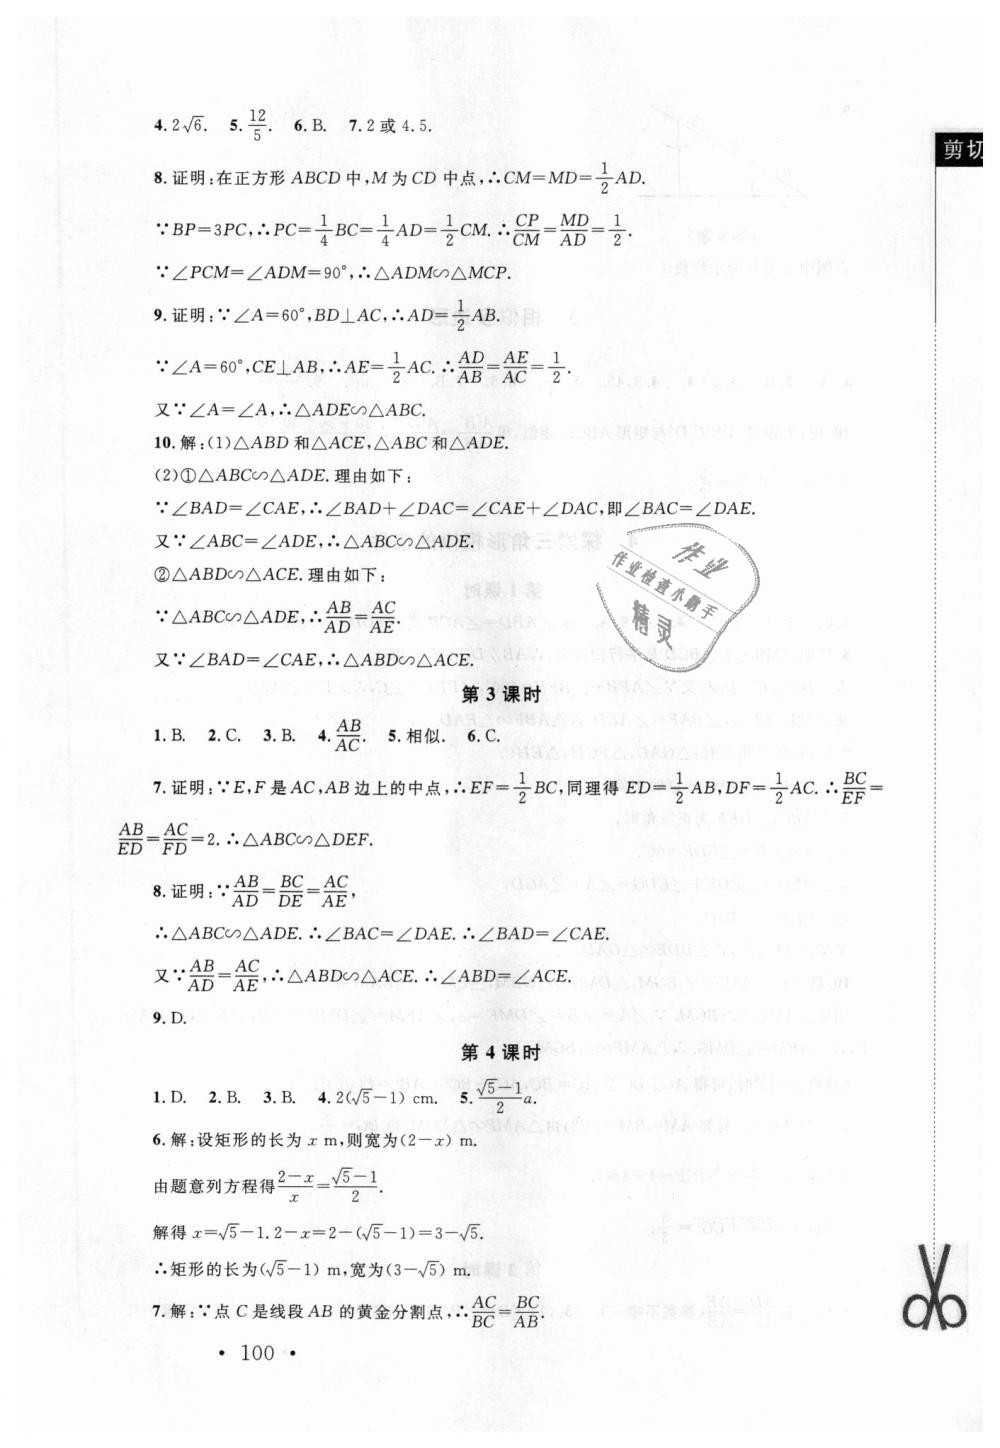 4. 2√6.　5. 12/5.　6. B.　7. 2 或 4.5.
8. 证明:在正方形 ABCD 中,M 为 CD 中点,∴CM=MD=1/2 AD.
∵BP=3PC,∴PC=1/4 BC=1/4 AD=1/2 CM.∴CP/CM=MD/AD=1/2.
∵∠PCM=∠ADM=90°,∴△ADM∽△MCP.
9. 证明:∵∠A=60°,BD⊥AC,∴AD=1/2 AB.
∵∠A=60°,CE⊥AB,∴AE=1/2 AC.∴AD/AB=AE/AC=1/2.
又∵∠A=∠A,∴△ADE∽△ABC.
10. 解:(1)△ABD 和△ACE,△ABC 和△ADE.
(2)①△ABC∽△ADE.理由如下:
∵∠BAD=∠CAE,∴∠BAD+∠DAC=∠CAE+∠DAC,即∠BAC=∠DAE.
又∵∠ABC=∠ADE,∴△ABC∽△ADE.
②△ABD∽△ACE.理由如下:
∵△ABC∽△ADE,∴AB/AD=AC/AE.
又∵∠BAD=∠CAE,∴△ABD∽△ACE.
第 3 课时
1. B.　2. C.　3. B.　4. AB/AC.　5. 相似.　6. C.
7. 证明:∵E,F 是 AC,AB 边上的中点,∴EF=1/2 BC,同理得 ED=1/2 AB,DF=1/2 AC.∴BC/EF=
AB/ED=AC/FD=2.∴△ABC∽△DEF.
8. 证明:∵AB/AD=BC/DE=AC/AE,
∴△ABC∽△ADE.∴∠BAC=∠DAE.∴∠BAD=∠CAE.
又∵AB/AD=AC/AE,∴△ABD∽△ACE.∴∠ABD=∠ACE.
9. D.
第 4 课时
1. D.　2. B.　3. B.　4. 2(√5-1) cm.　5. (√5-1)/2 a.
6. 解:设矩形的长为 x m,则宽为(2-x) m.
由题意列方程得(2-x)/x=(√5-1)/2.
解得 x=√5-1.2-x=2-(√5-1)=3-√5.
∴矩形的长为(√5-1) m,宽为(3-√5) m.
7. 解:∵点 C 是线段 AB 的黄金分割点,∴AC/BC=BC/AB.
• 100 •
剪切
作业
作业检查小帮手
精灵